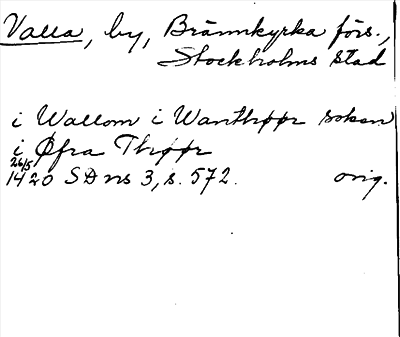 Valla, by, Brännkyrka förs.,
Stockholms stad
i Wallom i Wanthøør soken
i Øfra Thøør
26/5
1420 SD ns 3, s. 572. orig.